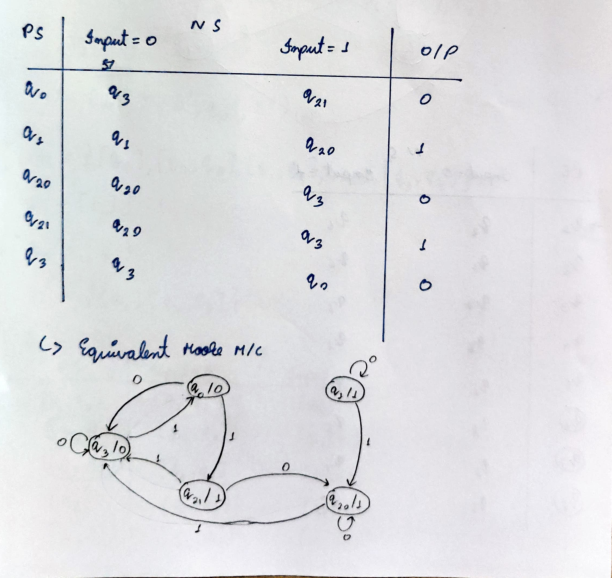 PS NS
Input = 0 Input = 1 O/P
q0 q3 q21 0
q1 q1 q20 1
q20 q20 q3 0
q21 q20 q3 1
q3 q3 q0 0
↳ Equivalent Moore M/C
0 q0/0 0
q1/1
1 1 1
0 q3/0 1 0
q21/1 q20/1
1 0